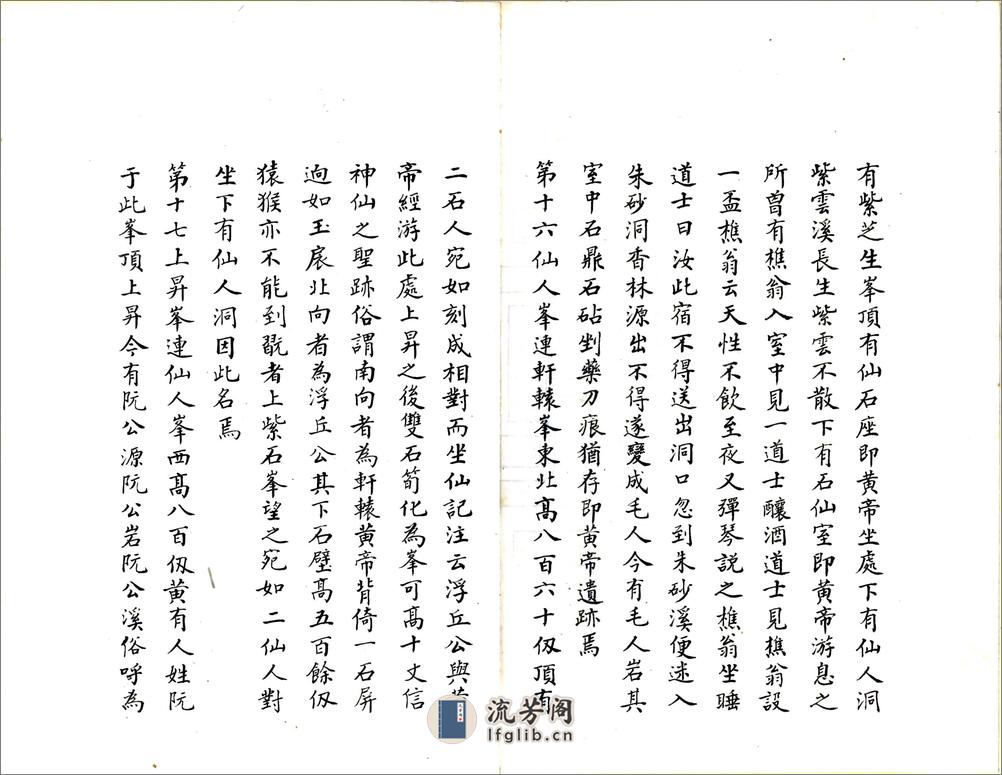 有紫芝生峯頂有仙石座即黄帝坐處下有仙人洞
紫雲溪長生紫雲不散下有石仙室即黄帝游息之
所曽有樵翁入室中見一道士釀酒道士見樵翁設
一盃樵翁云天性不飲至夜又彈琴説之樵翁坐睡
道士曰汝此宿不得送出洞口忽到朱砂溪便迷入
朱砂洞香林源出不得遂變成毛人今有毛人岩其
室中石鼎石砧剉藥刀痕猶存即黄帝遺跡焉
第十六仙人峯連軒轅峯東北髙八百六十仭頂有
二石人宛如刻成相對而坐仙記注云浮丘公與
帝經游此處上昇之後雙石筍化為峯可髙十丈信
神仙之聖跡俗謂南向者為軒轅黄帝背倚一石屏
逈如玉扆北向者為浮丘公其下石壁髙五百餘仭
猿猴亦不能到翫者上紫石峯望之宛如二仙人對
坐下有仙人洞因此名焉
第十七上昇峯連仙人峯西髙八百仭黄有人姓阮
于此峯頂上昇今有阮公源阮公岩阮公溪俗呼為
流芳阁
lfglib.cn